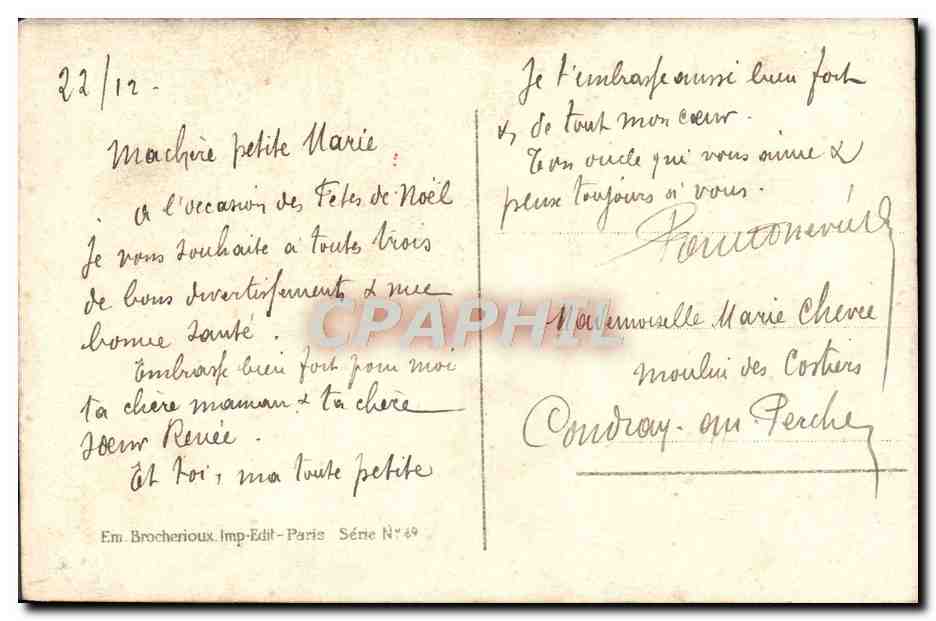 22/12.
Ma chère petite Marie
A l'occasion des Fêtes de Noël
Je vous souhaite à toutes trois
de bons divertissements & une
bonne santé.
Embrasse bien fort pour moi
ta chère maman & ta chère
sœur Renée.
Et toi, ma toute petite
Em. Brocherioux. Imp-Edit-Paris Série No 69
Je t'embrasse aussi bien fort
& de tout mon cœur.
Ton oncle qui vous aime &
pense toujours à vous.
CPAPHIL
Mademoiselle Marie Chevée
Moulin des Costiers
Coudray-au-Perche